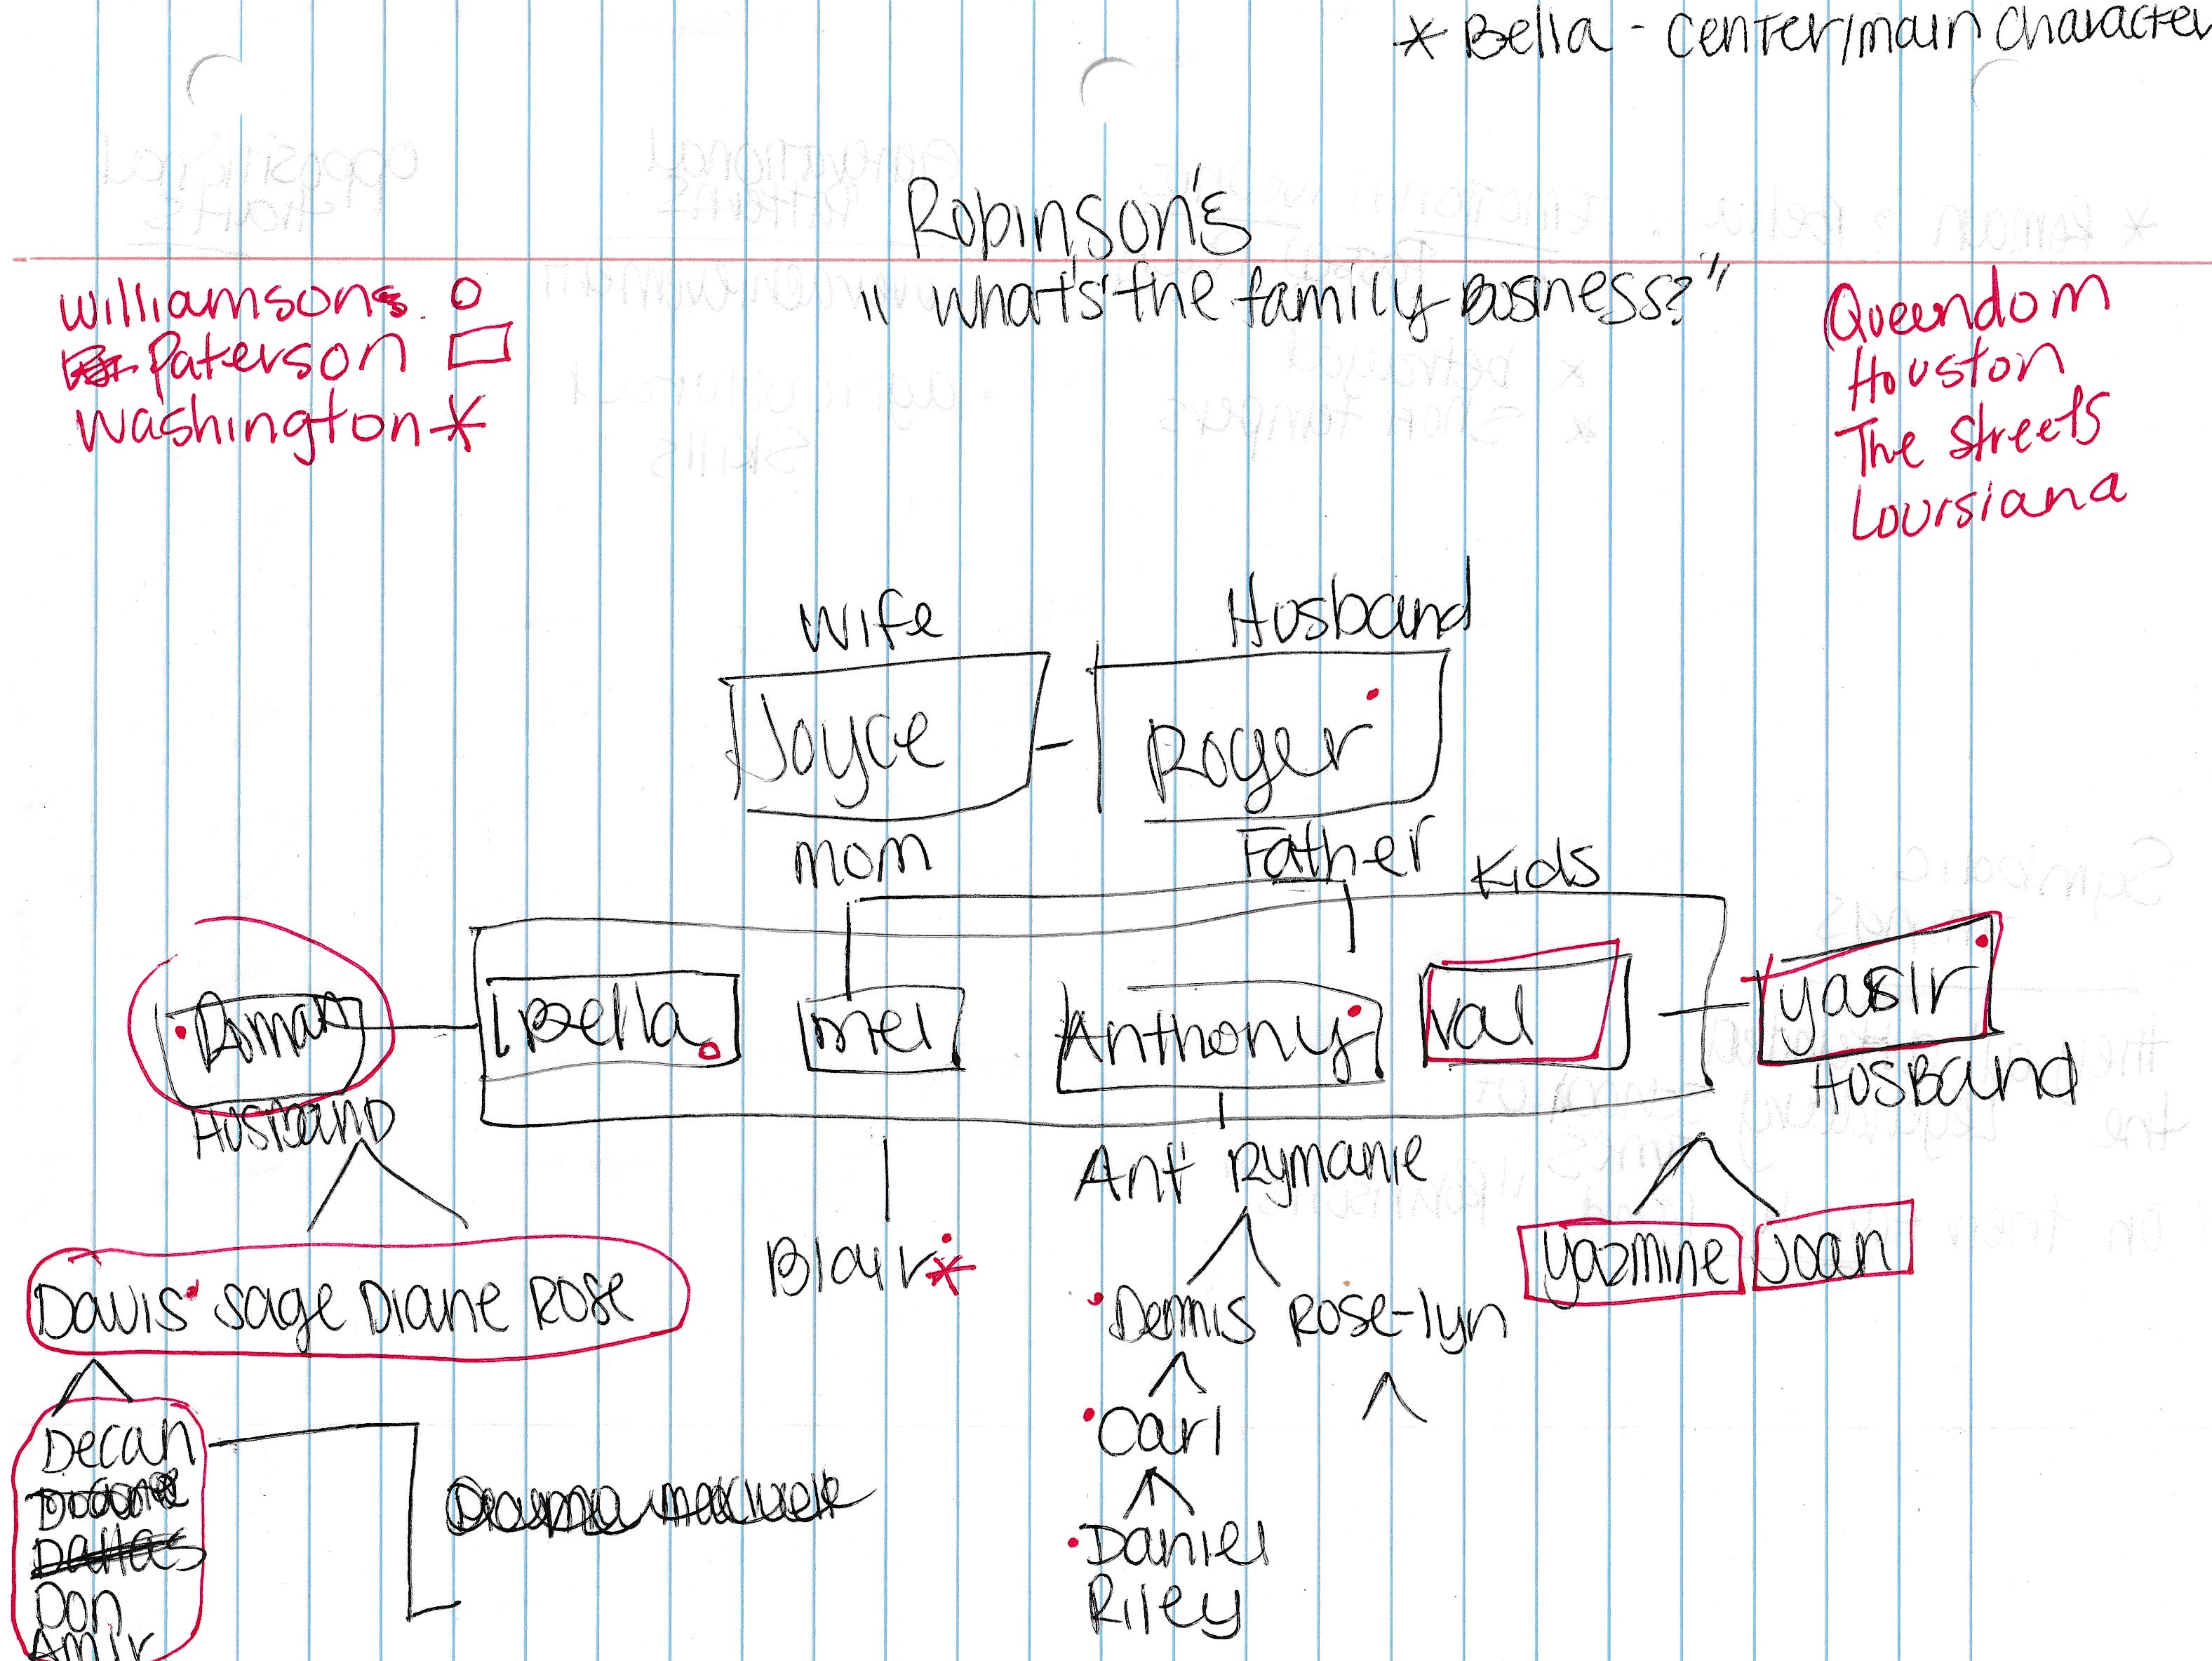 * Bella - center/main character
Robinson's
"What's the family Business?"
Williamsons
Paterson
Washington *
Queendom
Houston
The Streets
Lousiana
Wife
Husband
Joyce
Roger
mom
Father
Kids
Roman
Bella
mel
Anthony
Val
yasir
Husband
HusBand
Ant Rymanie
Blair *
Yazmine Joan
Davis Sage Diane Rose
Dennis Rose-lyn
Decan
Carl
Dallas
Don
Amir
Daniel
Riley